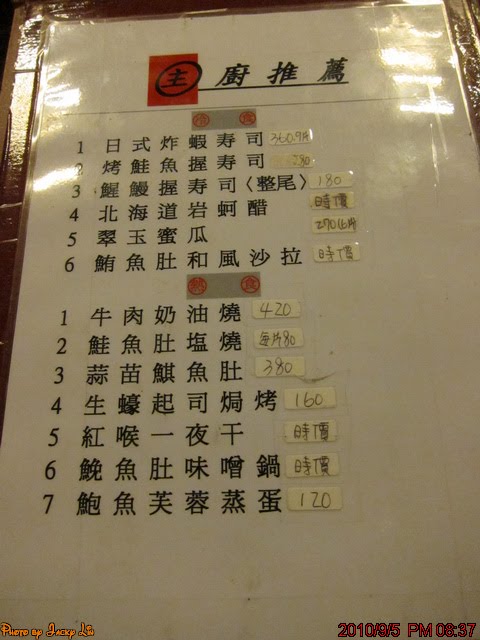 主廚推薦
冷食
1 日式炸蝦寿司 360.9片
2 烤鮭魚握寿司 280
3 鰻握寿司〈整尾〉 180
4 北海道岩蚵醋 時價
5 翠玉蜜瓜 270
6 鮪魚肚和風沙拉 時價
熱食
1 牛肉奶油燒 420
2 鮭魚肚塩燒 每片80
3 蒜苗魚肚 380
4 生蠔起司焗烤 160
5 紅喉一夜干 時價
6 鮸魚肚味噌鍋 時價
7 鮑魚芙蓉蒸蛋 120
Photo by Jacky Lin
2010/9/5 PM 08:37